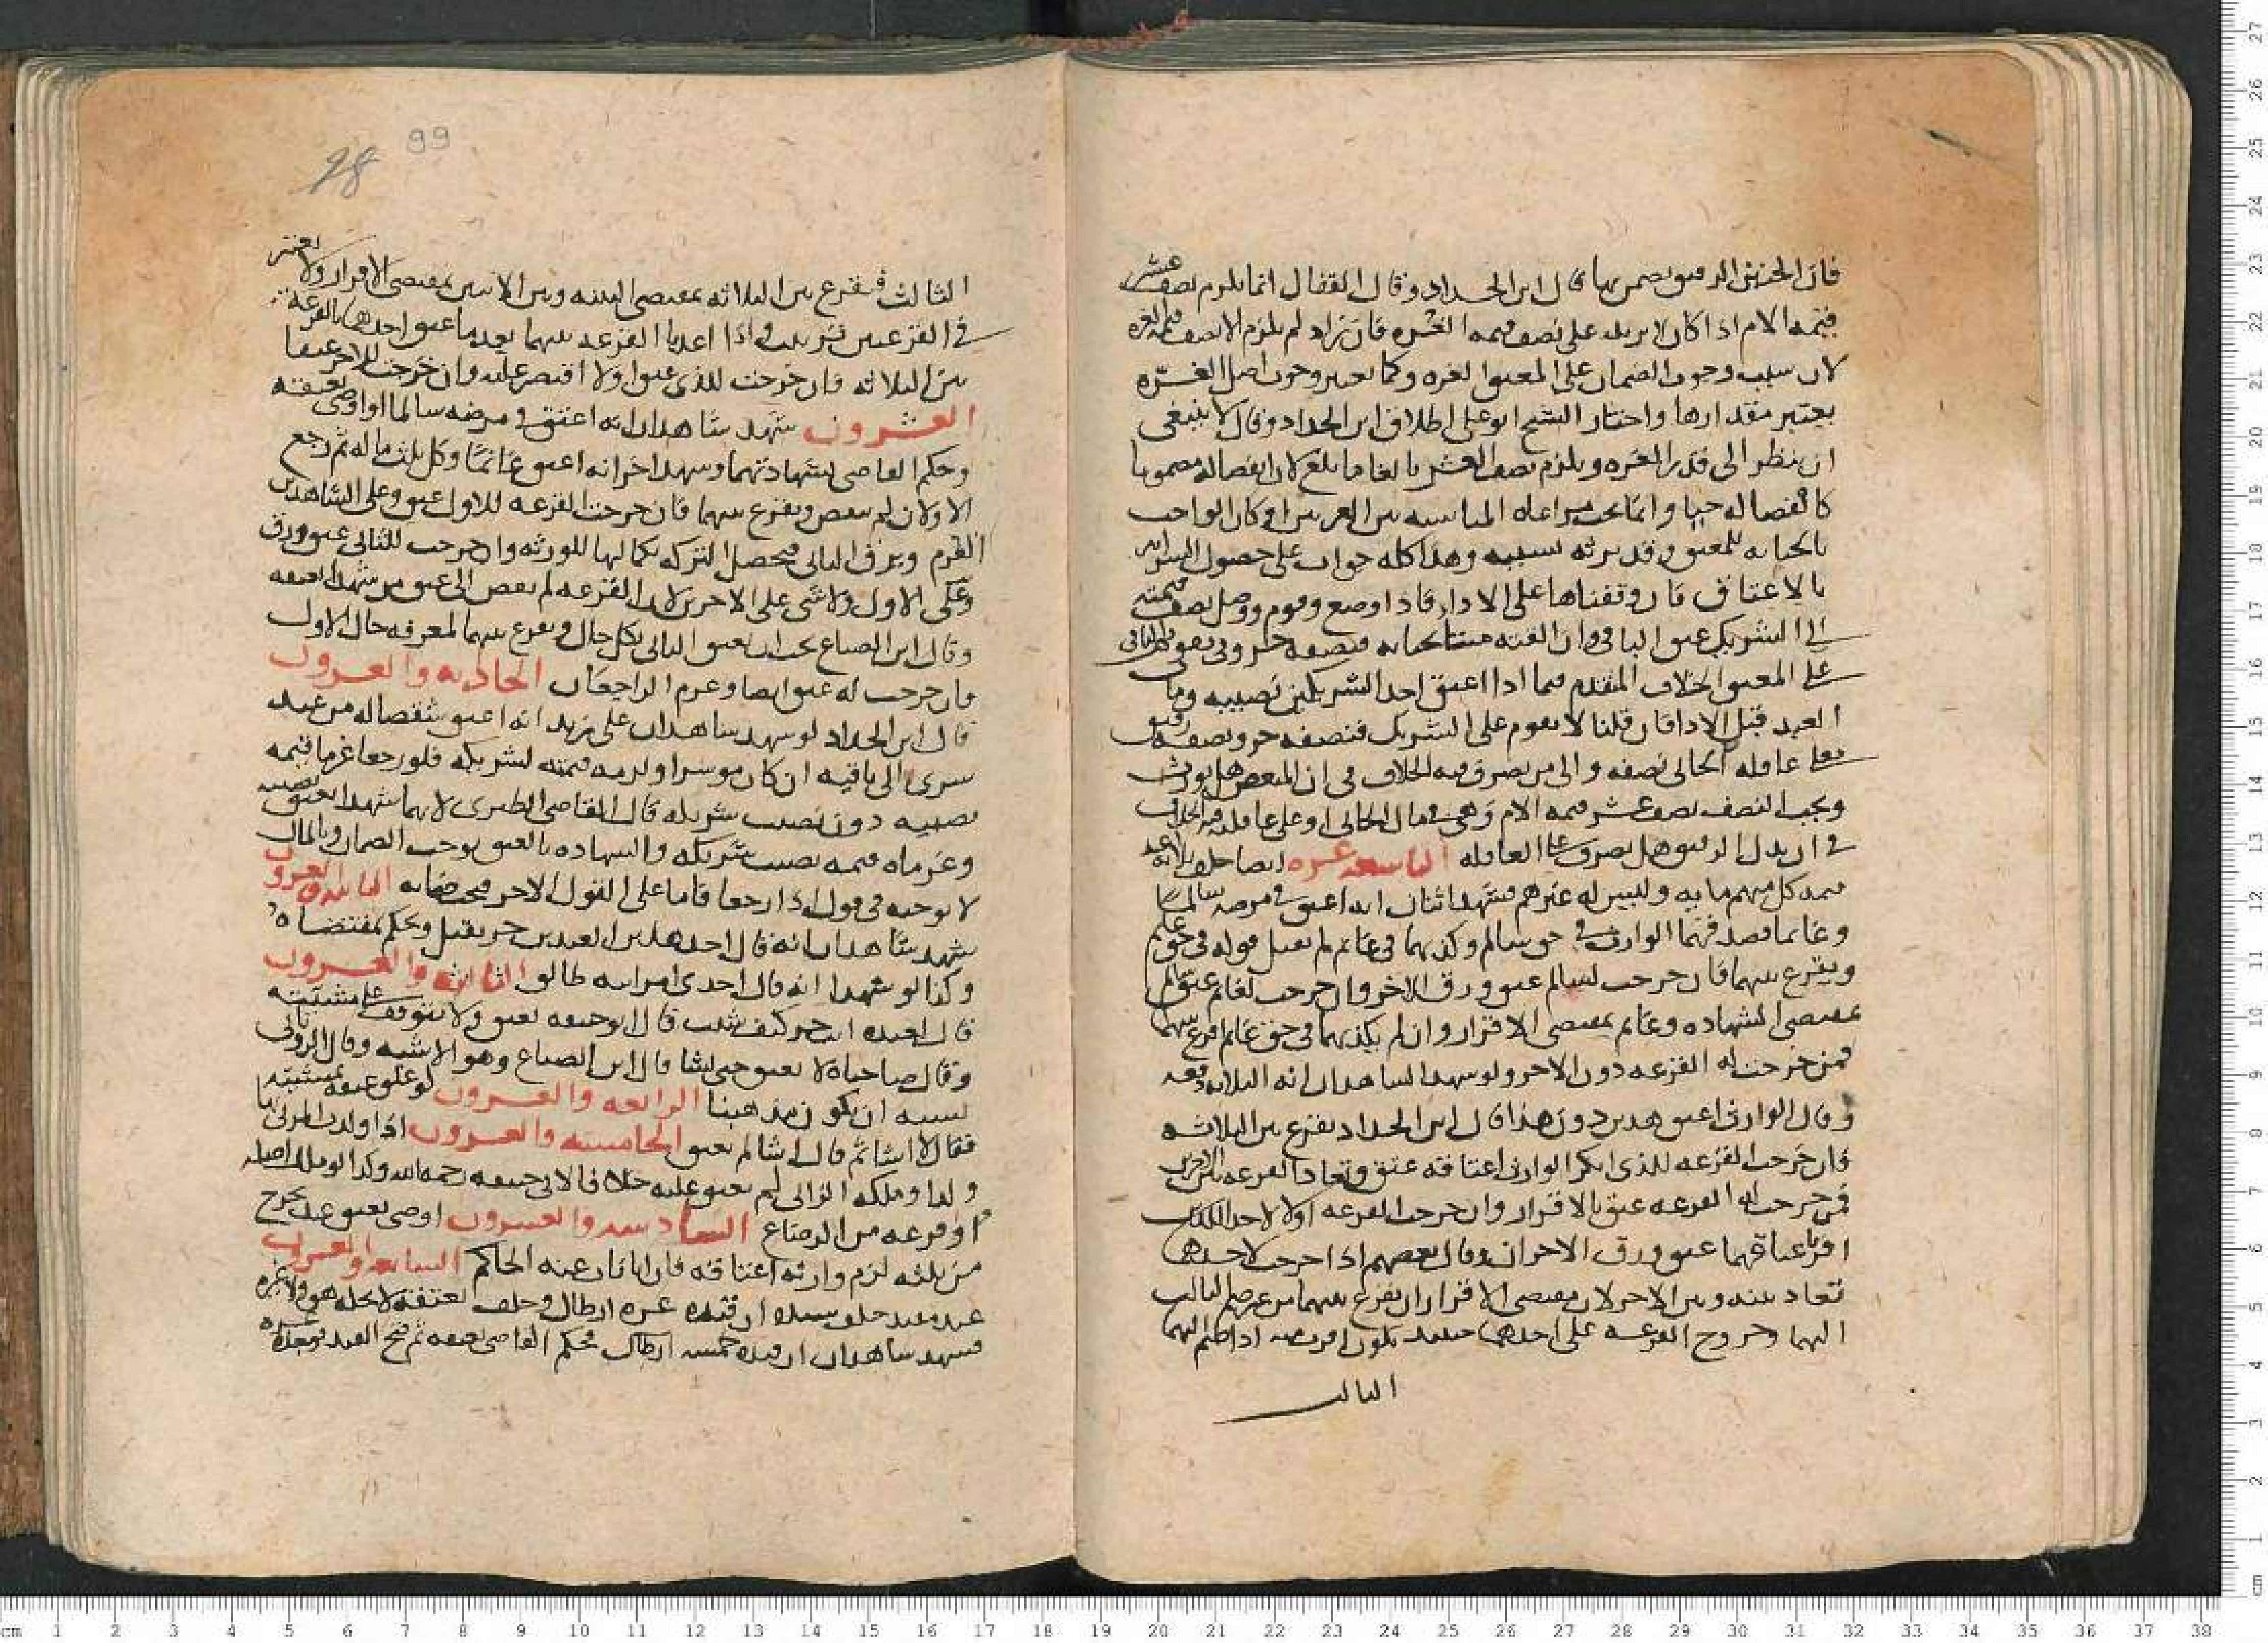 فان الجنين الرقيق يضمن بها قال ابن الحداد وقال القفال انما يلزم نصف عشر
قيمة الام اذا كان لا يزيد على نصف قيمة الغره فان زاد لم يلزم الا نصف قيمة الغره
لان سبب وجوب الضمان على المعتق الغره وكما يعتبر وجوب اصل الغرّه
يعتبر مقدارها واختار الشيخ ابو على اطلاق ابن الحداد وقال لا ينبغى
ان ينظر الى قدر الغره ويلزم نصف العشر بالغا ما بلغ لان انفصاله مضمونا
كانفصاله حيا وانما يحب مراعاه المناسبه بين الغرمين او كان الواجب
بالجنايه للمعتق وقد يرثه بسببه وهذا كله جواب على حصول السرايه
بالاعتاق فان وقفناها على الادا فاذا وضع وقوم ووصل نصف قيمته
الى الشريك عتق الباقى وان القته ميتا بجنايه فنصفه حر وفى تقويم الباقى
على المعتق الخلاف المتقدم فيما اذا اعتق احد الشريكين نصيبه ومات
العبد قبل الادا فان قلنا لا يقوم على الشريك فنصفه حر ونصفه رقيق
فعلى عاقله الجانى نصفه والى من يصرف فيه الخلاف فى ان المبعض هل يورث
ويجب للنصف نصف عشر قيمه الام وهى فى مال الجانى او على عاقلته فيه الخلاف
فى ان بدل الرقيق هل يضرب على العاقله التاسعه عشره ايضا خلف ثلاثه اعبد
قيمه كل منهم مايه وليس له غيرهم فشهد اثنان انه اعتق فى مرضه سالما
وغانما فصدقهما الوارث فى حق سالم وكذبهما فى غانم لم يقبل قوله فى حق غانم
ويقرع بينهما فان خرجت لسالم عتق ورق الاخر وان خرجت لغانم عتق سالم
بمقتضى الشهاده وغانم بمقتضى الاقرار وان لم يكذبهما فى حق غانم اقرع بينهما
فمن خرجت له القرعه دون الاخر ولو شهد الشاهدان انه الثلاثه دفعه
وقال الوارث اعتق هذين دون هذا قال ابن الحداد يقرع بين الثلاثه
فان خرجت القرعه للذى انكر الوارث اعتاقه عتق وتعاد القرعه بين الاخرين
فمن خرجت له القرعه عتق بالاقرار وان خرجت القرعه اولا لاحد اللذين
اقر باعتاقهما عتق ورق الاخران وقال بعضهم اذا خرجت لاحدهما
تعاد بينه وبين الاخر لان مقتضى الاقرار ان يقرع بينهما من غير ضم الثالث
اليهما وخروج القرعه على احدهما حينئذ تكون اقرب منه اذا ضم اليهما
الثالث
99
98
الثالث فيقرع بين الثلاثه بمقتضى البينه وبين الاثنين بمقتضى الاقرار ولا يعتبر
فى القرعتين ترتيب فاذا اعدنا القرعه بينهما بعد ما عتق احدهما بالقرعه
بين الثلاثه فان خرجت للذى عتق اولا اقتصر عليه وان خرجت للاخر عتقا
العشرون شهد شاهدان انه اعتق فى مرضه سالما او اوصى بعتقه
وحكم القاضى بشهادتهما وشهد اخران انه اعتق غانما وكل ثلث ماله ثم رجع
الاولان لم ينقض ويقرع بينهما فان خرجت القرعه للاول عتق وعلى الشاهدين
الغرم ويرق الثانى فيحصل التركه بكمالها للورثه وان خرجت للثانى عتق ورق
وعلى الاول ولا شى على الاخرين لان القرعه لم تفض الى عتق من شهدا بعتقه
وقال ابن الصباغ يجب ان يعتق الثانى بكل حال ويقرع بينهما لمعرفه حال الاول
فان خرجت له عتق ايضا وغرم الراجعان الحاديه والعشرون
قال ابن الحداد لو شهد شاهدان على زيد انه اعتق شقصا له من عبد
سرى الى باقيه ان كان موسرا ولزمه قيمته لشريكه فلو رجعا غرما قيمه
نصيبه دون نصيب شريكه قال القاضى الطبرى لانهما شهدا بعتق نصيبه
وغرماه قيمه نصيب شريكه والشهاده بالعتق توجب الضمان وبالمال
لا توجبه فى قول اذا رجعا فاما على القول الاخر فيجب ضمانه الثانيه والعشرون
شهد شاهدان انه قال احد هذين العبدين حر يقبل ويحكم بمقتضاه
وكذا لو شهدا انه قال احدى امراتيه طالق الثالثه والعشرون
قال لعبده انت حر كيف شئت قال ابو حنيفه يعتق ولا يتوقف على مشيئته
وقال صاحباه لا يعتق حتى يشا قال ابن الصباغ وهو الاشبه وقال الرويانى
يشبه ان يكون مذهبنا الرابعه والعشرون لو علق عتقه بمشيئته
فقال لا اشا ثم قال اشا لم يعتق الخامسه والعشرون اذا اولد المرتد
ولدا وملكه الزانى لم يعتق عليه خلافا لابى حنيفه رحمه الله وكذا لو ملك اصله
او فرعه من الرضاع السادسه والعشرون اوصى بعتق عبد يخرج
من ثلثه لزم وارثه اعتاقه فان ابا ناب عنه الحاكم السابعه والعشرون
عبد مقيد حلف سيده ان قيده عشره ارطال وحلف بعتقه لا يحله هو ولا غيره
فشهد شاهدان ان قيده خمسه ارطال فحكم القاضى بعتقه ثم فتح القيد فوجده